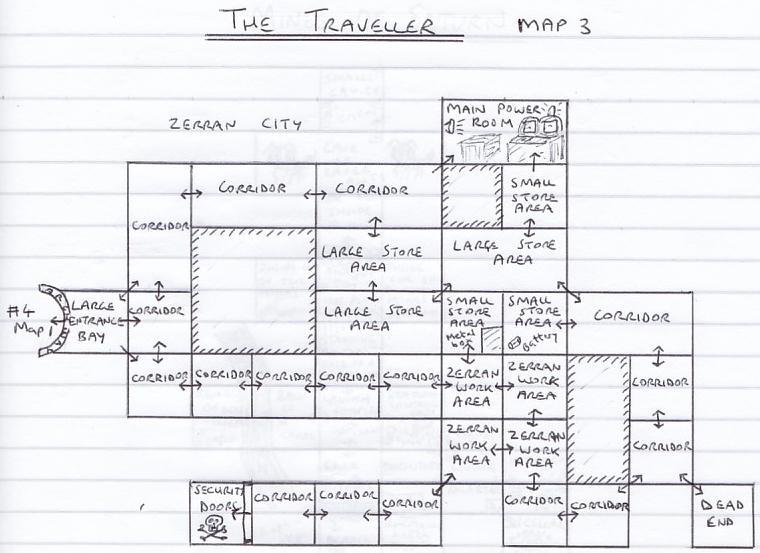 THE TRAVELLER MAP 3
ZERRAN CITY
MAIN POWER
ROOM
CORRIDOR
CORRIDOR
SMALL
STORE
AREA
CORRIDOR
LARGE STORE
AREA
LARGE STORE
AREA
#4
Map 1
LARGE
ENTRANCE
BAY
CORRIDOR
LARGE STORE
AREA
SMALL
STORE
AREA
Metal
box
SMALL
STORE
AREA
Battery
CORRIDOR
CORRIDOR
CORRIDOR
CORRIDOR
CORRIDOR
CORRIDOR
ZERRAN
WORK
AREA
ZERRAN
WORK
AREA
CORRIDOR
ZERRAN
WORK
AREA
ZERRAN
WORK
AREA
CORRIDOR
SECURITY
DOORS
CORRIDOR
CORRIDOR
CORRIDOR
CORRIDOR
CORRIDOR
DEAD
END